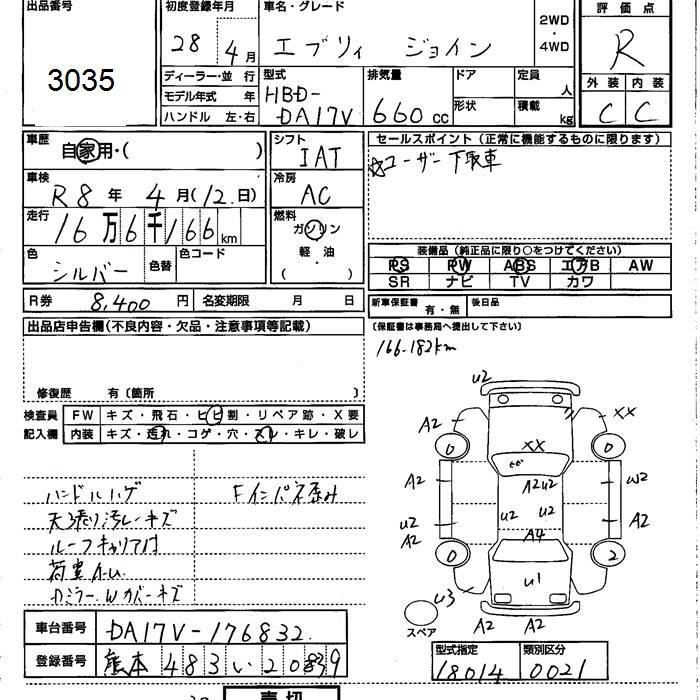 出品番号
3035
初度登録年月
28年 4月
車名・グレード
エブリィ ジョイン
2WD
・
4WD
評価点
R
外装 内装
C C
ディーラー・並行
モデル年式 年
ハンドル 左・右
型式
HBD-
DA17V
排気量
660 cc
ドア
形状
定員
人
積載
kg
車歴
自家用・( )
シフト
IAT
車検
R8年 4月(12日)
冷房
AC
走行
16万6千166km
燃料
ガソリン
軽・油
( )
色
シルバー
色替
色コード
R券 8,400円
名変期限 月 日
セールスポイント(正常に機能するものに限ります)
☆ユーザー下取車
装備品(純正品に限り○をつけてください)
PS PW ABS エアB AW
SR ナビ TV カワ
新車保証書 有・無
後日品
(保証書は事務局へ提出して下さい)
166.182km
出品店申告欄(不良内容・欠品・注意事項等記載)
修復歴 有〔箇所 〕
検査員
記入欄
FW キズ・飛石・ヒビ割・リペア跡・X要
内装 キズ・汚れ・コゲ・穴・スレ・キレ・破レ
ハンドルハゲ
Fインパネ歪み
天張り汚レキズ
ルーフキャリア付
荷室A.U.
Dミラー、Wカバーキズ
U2
A2
XX
0
0
XX
A2
A2U2
W2
U2
U2
U2
A2
A2
A4
0
2
U1
U3
スペア
A2
A2
車台番号 DA17V-176832
登録番号 熊本 483 い 2089
型式指定
18014
類別区分
0021
売切